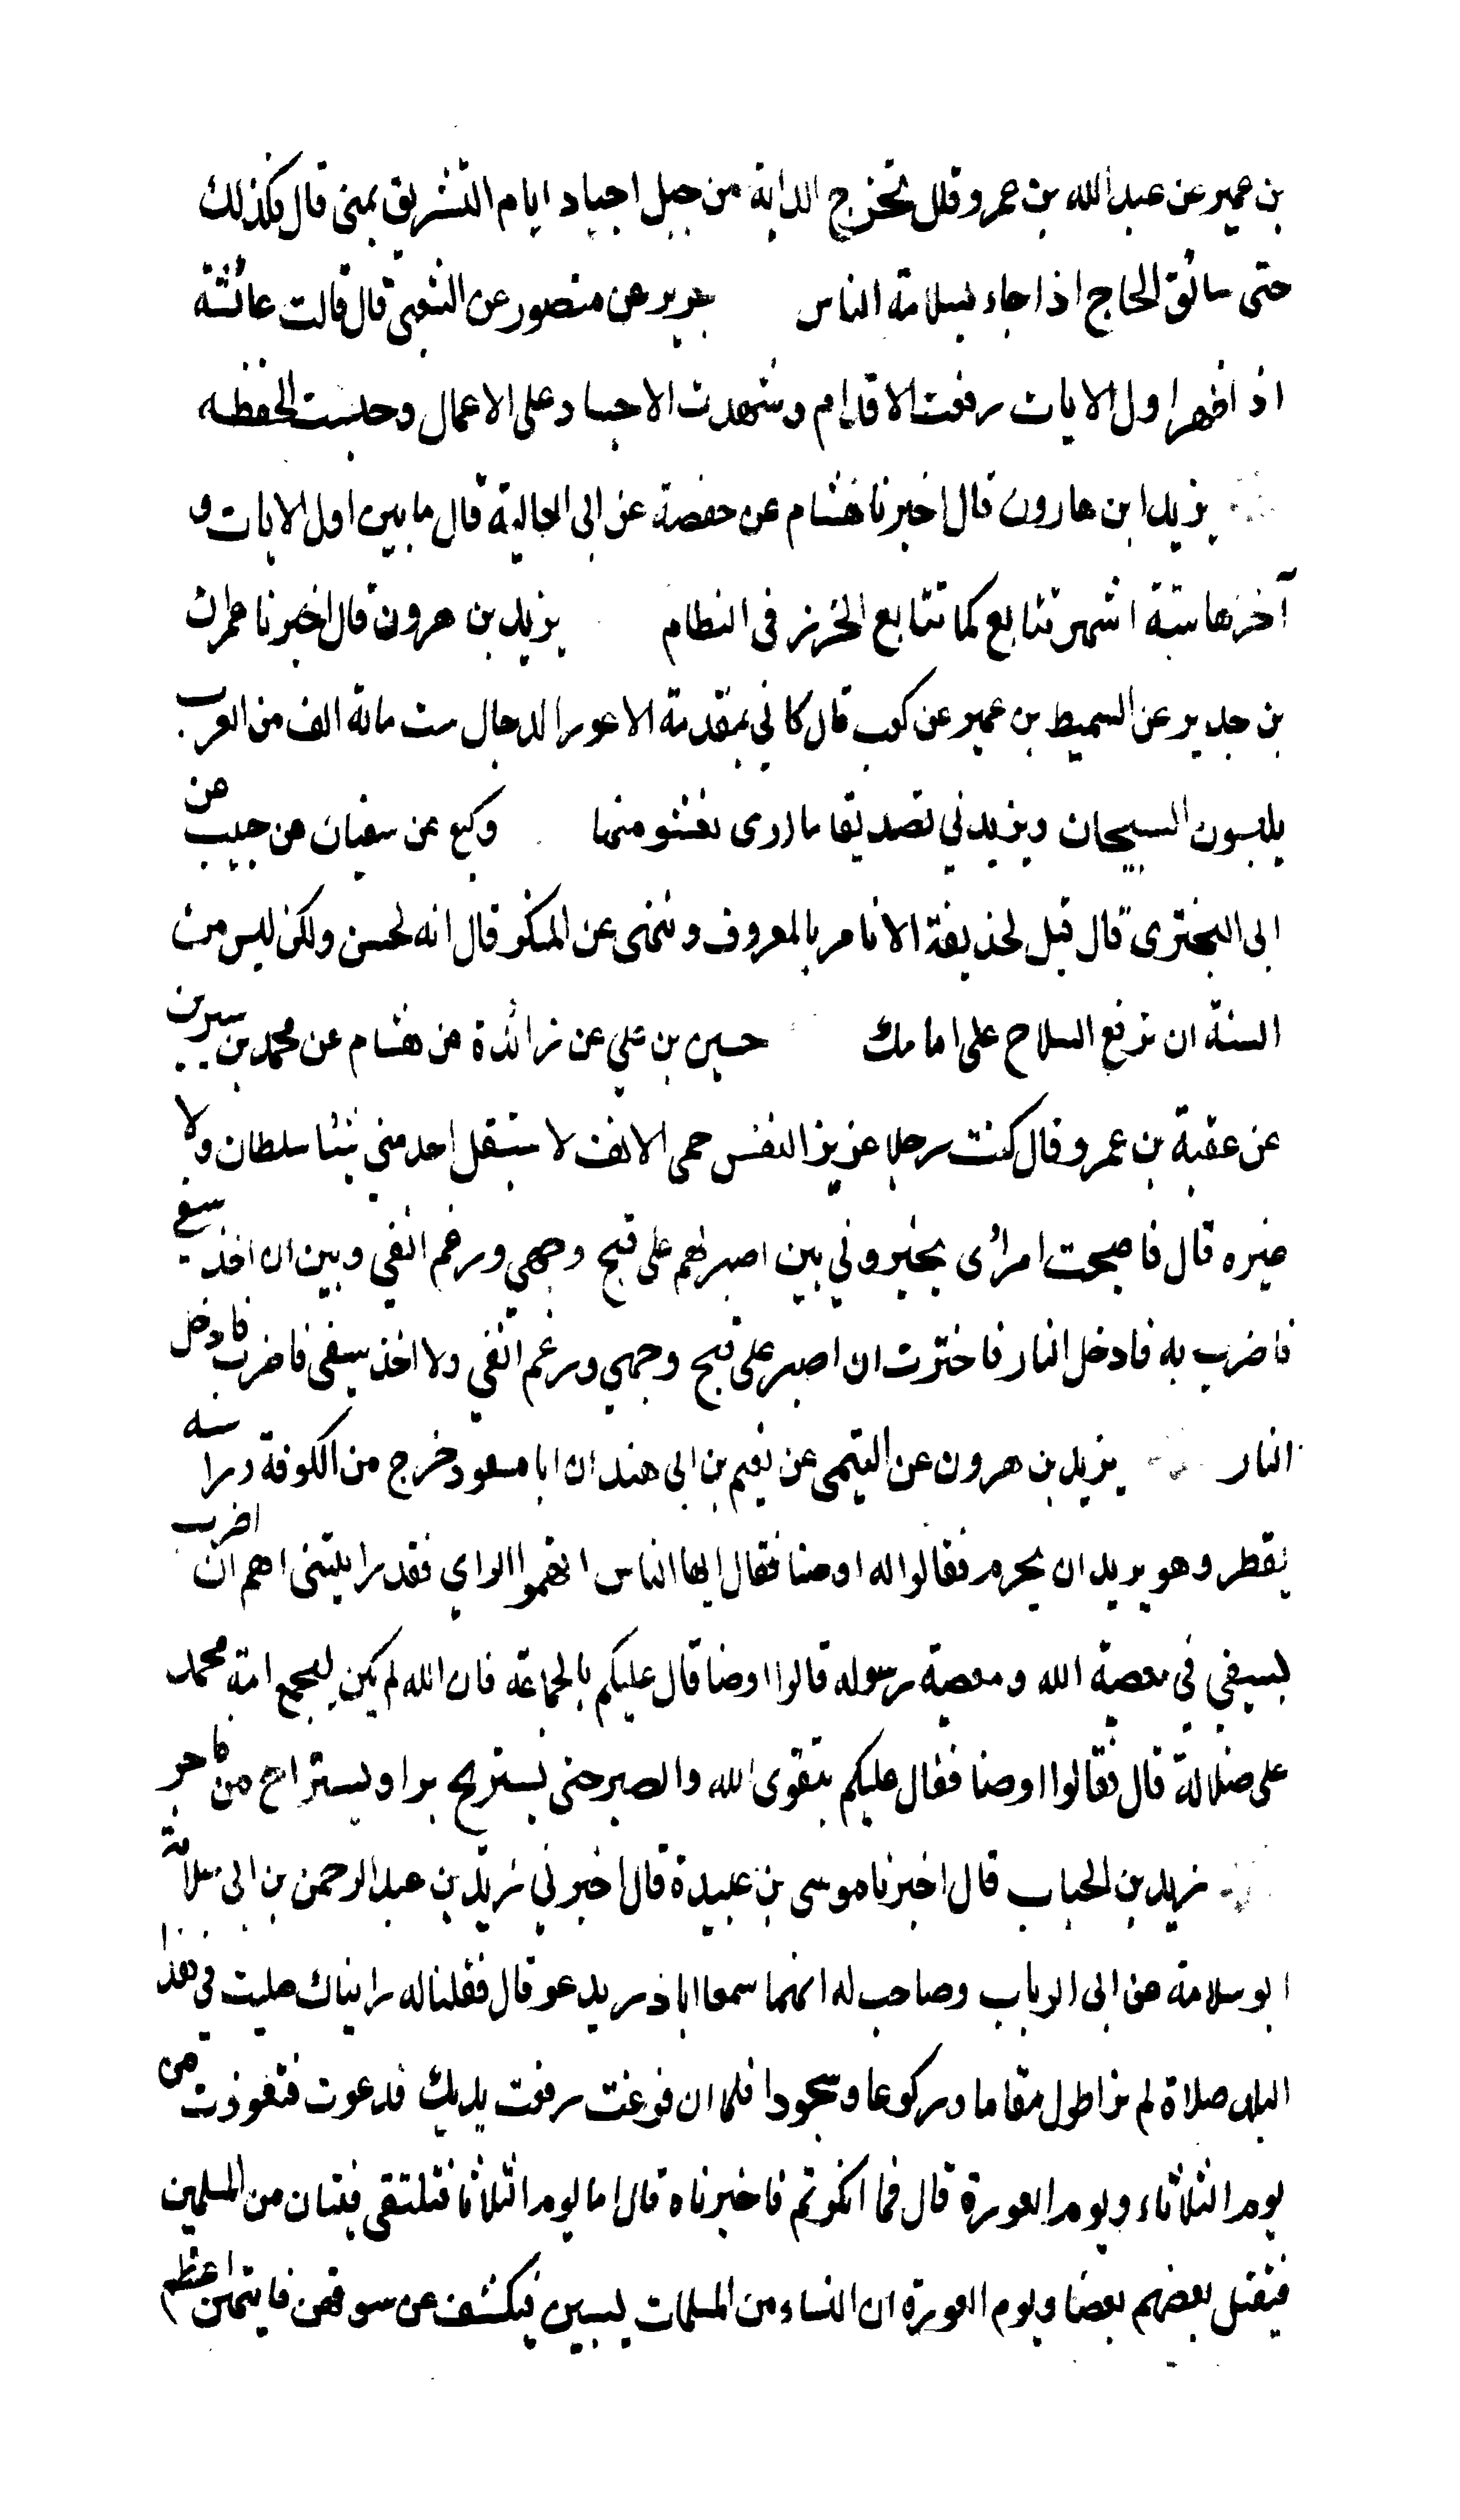 بن عمير عن عبدالله بن عمرو قال تخرج الدابة من جبل اجياد ايام التشريق بمنى قال فلذلك
حتى سائق الحاج اذا جاء بسلامة الناس جرير عن منصور عن الشعبي قال قالت عائشة
اذا ظهر اول الايات رفعت الاقلام وشهدت الاجساد على الاعمال وحبست الحفظه
يزيد ابن هارون قال اخبرنا هشام عن حفصة عن ابى العالية قال ما بين اول الايات و
آخرها ستة اشهر تتابع كما تتابع الخرز فى النظام يزيد بن هرون قال اخبرنا عمران
بن حدير عن السميط بن عمير عن كعب قال كانى بمقدمة الاعور الدجال ست مائة الف من العرب
يلبسون السيجان ويزيدني تصديقا ما ارى يفشو منها وكيع عن سفيان عن حبيب عن
ابى البخترى قال قيل لحذيفة الا نامر بالمعروف وننهى عن المنكر قال انه لحسن ولكن ليس من
السنة ان ترفع السلاح على امامك حسين بن علي عن زائدة عن هشام عن محمد بن سيرين
عن عقبة بن عمرو قال كنت رجلا عزيز النفس حمى الانف لا يستقل احد مني شيئا سلطان ولا
غيره قال فاصبحت امرائى يخيروني بين ان اصبر لهم على قبح وجهي ورغم انفي وبين ان اخذ سيفي
فاضرب به فادخل النار فاخترت ان اصبر على قبح وجهي ورغم انفي ولا اخذ سيفى فاضرب فادخل
النار يزيد بن هرون عن التيمى عن نعيم بن ابى هند ان ابا مسعود خرج من الكوفة ورا سه
يقطر وهو يريد ان يحرم فقالوا له اوصنا فقال ايها الناس اتهموا الراي فقد رايتنى اهم ان اضرب
بسيفي في معصية الله ومعصية رسوله قالوا اوصنا قال عليكم بالجماعة فان الله لم يكن ليجمع امة محمد
على ضلالة قال فقالوا اوصنا فقال عليكم بتقوى الله والصبر حتى يستريح بر او يستراح من فاجر
زيد بن الحباب قال اخبرنا موسى بن عبيدة قال اخبرني زيد بن عبد الرحمن بن ابى سلامة
ابو سلامة عن ابى الرباب وصاحب له انهما سمعا ابا ذر يدعو قال فقلنا له رايناك صليت في هذا
البلد صلاة لم نر اطول مقاما وركوعا وسجودا فلما ان فرغت رفعت يديك فدعوت فتعوذت من
يوم الثلاثاء ويوم العورة قال فما انكرتم فاخبرناه قال اما يوم الثلاثا فتلتقى فئتان من المسلمين
فيقتل بعضهم بعضا ويوم العورة ان النساء من المسلمات يسبين فيكشف عن سوقهن فايتهن اعظم